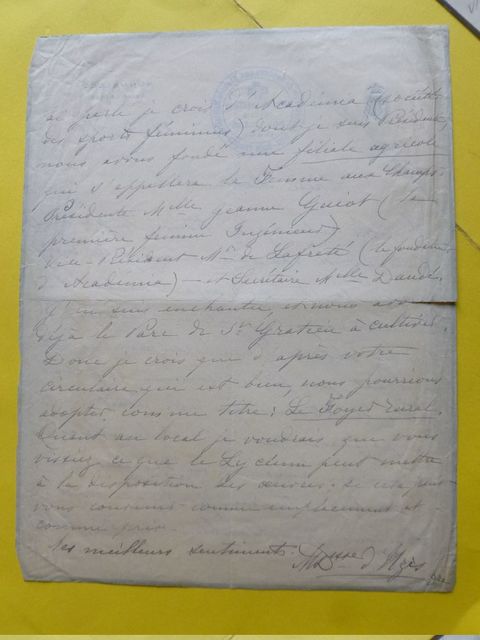 ai parlé je crois d'Academia (société
des sports féminins) dont je suis Présidente,
nous avons fondé une filiale agricole
qui s'appellera la Femme aux Champs
Présidente Melle Jeanne Guiot (la
première femme Ingénieur)
Vice-Président Mr de Lafreté (le fondateur
d'Academia) — et Secrétaire Melle Daudé.
J'en suis enchantée, et nous avons
déjà le Parc de St Gratien à cultiver.
Donc je crois que d'après votre
circulaire qui est bien, nous pourrions
adopter comme titre: Le Foyer rural.
Quant au local je voudrais que vous
vissiez ce que le Lyceum peut mettre
à la disposition des œuvres. Si cela peut
vous convenir comme emplacement et
comme prix.
Mes meilleurs sentiments. Dsse d'Uzès